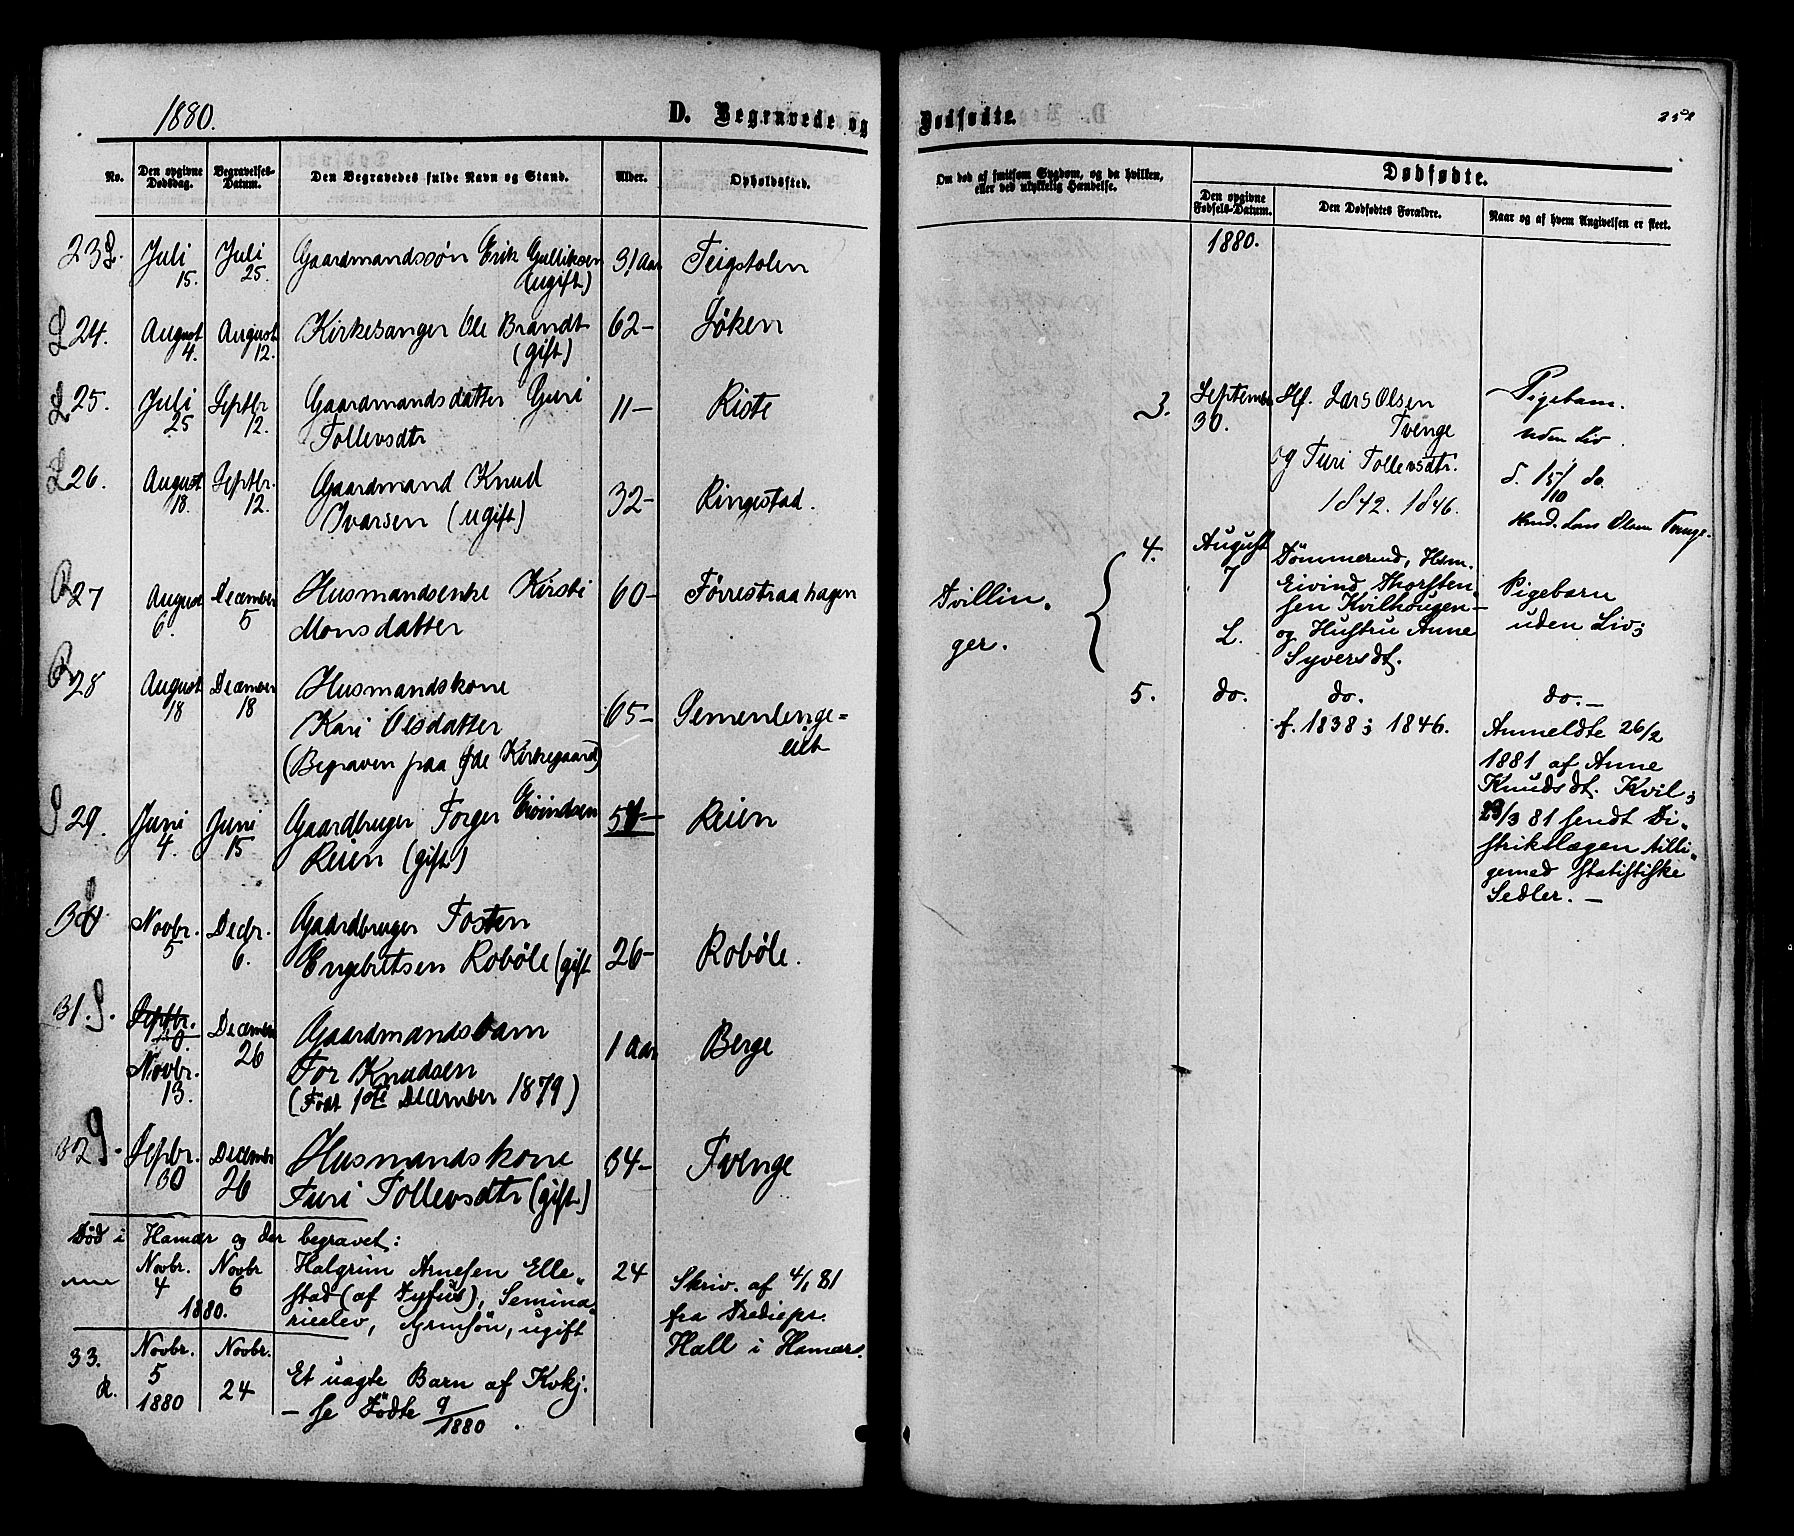 1880.
D. Begravede og
No.
Den opgivne Dødsdag.
Begravelses-Datum.
Den Begravedes fulde Navn og Stand.
Alder.
Opholdssted.
23 L. Juli 15. Juli 25. Gaardmandssøn Erik Gulliksen (ugift) 31 aar Feigstolen
L 24. August 4. August 12. Kirkesanger Ole Brandt (gift) 62- Løken
L 25. Juli 25 Septbr 12. Gaardmandsdatter Guri Tollevsdtr 11- Riste
L 26. August 18. Septbr. 12. Gaardmand Knud Ivarsen (ugift) 32- Ringestad.
R 27 August 6. December 5 Husmandsenke Kirsti Monsdatter 60- Førrestraahagen
R 28 August 18 December 18 Husmandskone
Kari Olsdatter 65-
(Begraven paa Øde Kirkegaard)
S 29. Juni 4. Juni 15. Gaardbruger Torger Eivindsen Reien (gift) Reien
30 Novbr. 5 Decbr. 6. Gaardbruger Tosten Engebretsen Robøle (gift 26- Robøle.
31. S. Septbr. Novbr. 13. December 26 Gaardmandsbarn
Tor Knudsen 1 aar Berge
(Født 1ste December 1879)
32 S. Sepbr. 30 December 26 Husmandskone
Turi Tollevsdtr (gift) 34- Tvenge
Død i Hamar og der begravet:
Novbr. 4 Novbr 6 1880. Halgrim Arnesen Elle-
stad (af Tyfus), Semina-
rieelev, ugift 24
Skriv. af 4/1 81
fra Prediepr.
Hall i Hamar.
33. R. Novbr. 5 1880 Novbr. 24 Et uægte Barn af
- se Fødte 9/1880.
Dødfødte.
252
Om død af smitsom Sygdom, og da hvilken, eller ved ulykkelig Hændelse.
Dødfødte.
Den opgivne Fødsels-Datum.
Den Dødfødtes Forældre.
Naar og af hvem Angivelsen er skeet.
1880.
3. September 30. Hf. Lars Olsen
Tvenge
og Turi Tollevsdtr.
1842. 1846.
Pigebarn.
uden Liv.
d. 15/10 do.
Husm. Lars Olsen Tvenge.
Tvillin-
ger.
4. August 7 L. Tømmermd, Hsm.
Eivind Thorsten-
sen Kvilhougen-
og Hustru Anne
Syversdt.
Pigebarn
uden Liv;
5. do. do. do.-
f. 1838; 1846.
Anmeldte 26/2
1881 af Anne
Knudsdt. Kvil;
23/3 81 sendt Di-
strikslægen tilli-
gemed statistiske
Sedler. -